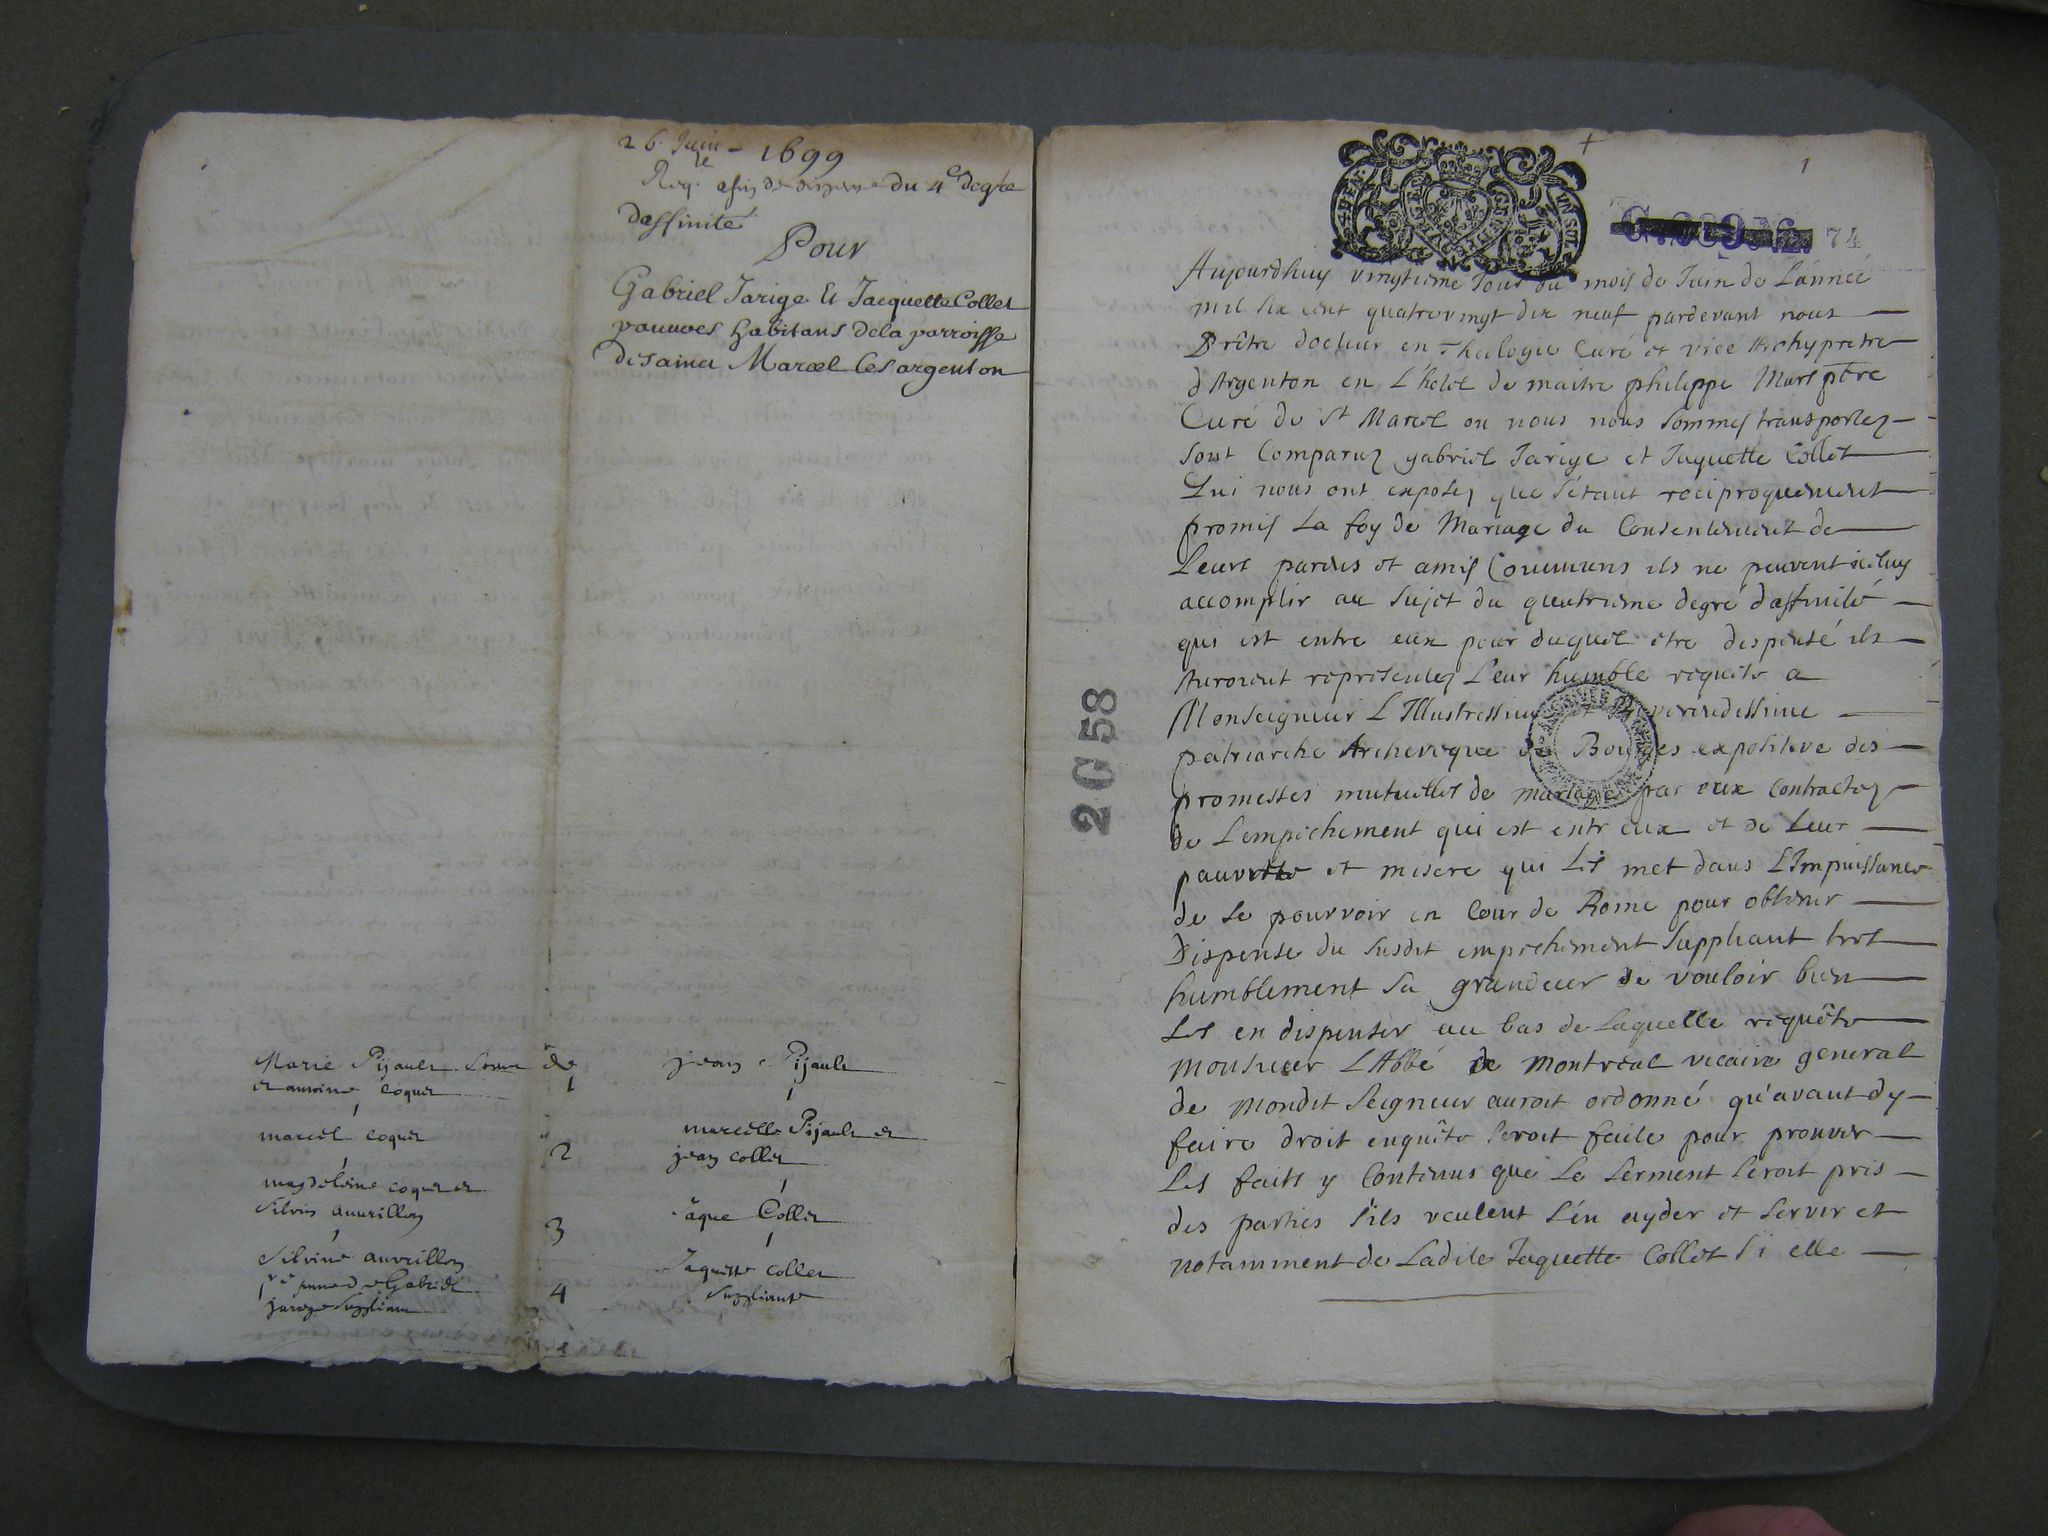 26 Juin - 1699
Reqte afin de dispense du 4e degré
daffinité
Pour
Gabriel Jarige Et Jacquette Collet
pauures habitans dela parroisse
de saint Marcel les argenton
Marie Pijault soeur de jean Pijault
et antoine coquet
1
marcel coquet
marcelle Pijault et
2
jean collet
magdeleine coquet et
silvin auurillon
3
Jaque Collet
silvine auvrillon
Jaquette collet
4
suppliante
pre femme de Gabriel
jarige suppliant
2 G 58
1
74
Aujourdhuy vingtieme Jour du mois de Juin de L'année
mil six cent quatrevingt dix neuf pardevant nous
Prêtre docteur en Theologie Curé et vice Archypretre
d'Argenton en L'hotel de maitre philippe Mars pbre
Curé de St Marcel ou nous nous sommes transportez
sont Comparuz gabriel Jarige et Jaquette Collet
Qui nous ont exposez que s'étant réciproquement
promis La foy de Mariage du Consentement de
Leurs parens et amis Communs ils ne peuvent iceluy
accomplir au sujet du quatrieme degré d'affinité
qui est entre eux pour duquel etre dispensé ils
Auroient representez Leur humble requete a
Monseigneur L'Illustrissime et Reverendissime
patriarche Archeveque de Bourges expositive des
promesses mutuelles de mariages par eux contractez
de L'empechement qui est entr eux et de Leur
pauvreté et misere qui Les met dans L'Impuissance
de se pourvoir en Cour de Rome pour obtenir
Dispense du susdit empechement suppliant tres
humblement sa grandeur de vouloir bien
Les en dispenser au bas de Laquelle requête
Monsieur L'Abbé de Montreal vicaire general
de mondit Seigneur auroit ordonné qu'avant dy
faire droit enquête seroit faite pour prouver
Les faits y Contenus que Le serment seroit pris
des parties s'ils veulent s'en ayder et servir et
notamment de Ladite Jaquette Collet si elle